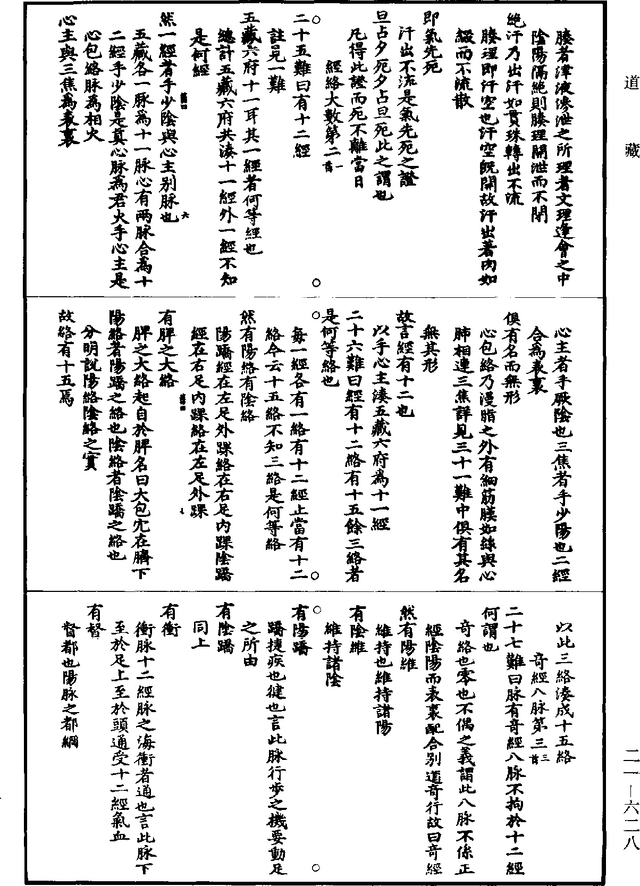 道藏
腠者津液滲泄之所理者文理逢會之中
陰陽隔絶則腠理開泄而不閉
絶汗乃出汗如貫珠轉出不流
腠理即汗空也汗空旣開故汗出著肉如
綴而不流散
即氣先死
汗出不流是氣先死之證
旦占夕死夕占旦死此之謂也
凡得此證而死不離當日
經絡大數第二
二十五難曰有十二經
註見一難
五藏六府十一耳其一經者何等經也
總計五藏六府共湊十一經外一經不知
是何經
然一經者手少陰與心主別脉也
五藏各一脉為十一脉心有兩脉合為十
二經手少陰是真心脉為君火手心主是
心包絡脉為相火
心主與三焦為表裏
心主者手厥陰也三焦者手少陽也二經
合為表裏
俱有名而無形
心包絡乃漫脂之外有細筋膜如絲與心
肺相連三焦詳見三十一難中俱有其名
無其形
故言經有十二也
以手心主湊五藏六府為十一經
二十六難曰經有十二絡有十五餘三絡者
是何等絡也
每一經各有一絡有十二經止當有十二
絡今云十五絡不知三絡是何等絡
然有陽絡有陰絡
陽蹻經在左足外踝絡在右足內踝陰蹻
經在右足內踝絡在左足外踝
有脾之大絡
脾之大絡起自於脾名曰大包穴在臍下
陽絡者陽蹻之絡也陰絡者陰蹻之絡也
分明說陽絡陰絡之實
故絡有十五焉
以此三絡湊成十五絡
奇經八脉第三
二十七難曰脉有奇經八脉不拘於十二經
何謂也
奇絡也零也不偶之義謂此八脉不係正
經陰陽而表裏配合別道奇行故曰奇經
然有陽維
維持也維持諸陽
有陰維
維持諸陰
有陽蹻
蹻捷疾也健也言此脉行步之機要動足
之所由
有陰蹻
同上
有衝
衝脉十二經脉之海衝者通也言此脉下
至於足上至於頭通受十二經氣血
有督
督都也陽脉之都綱
二一—六二八